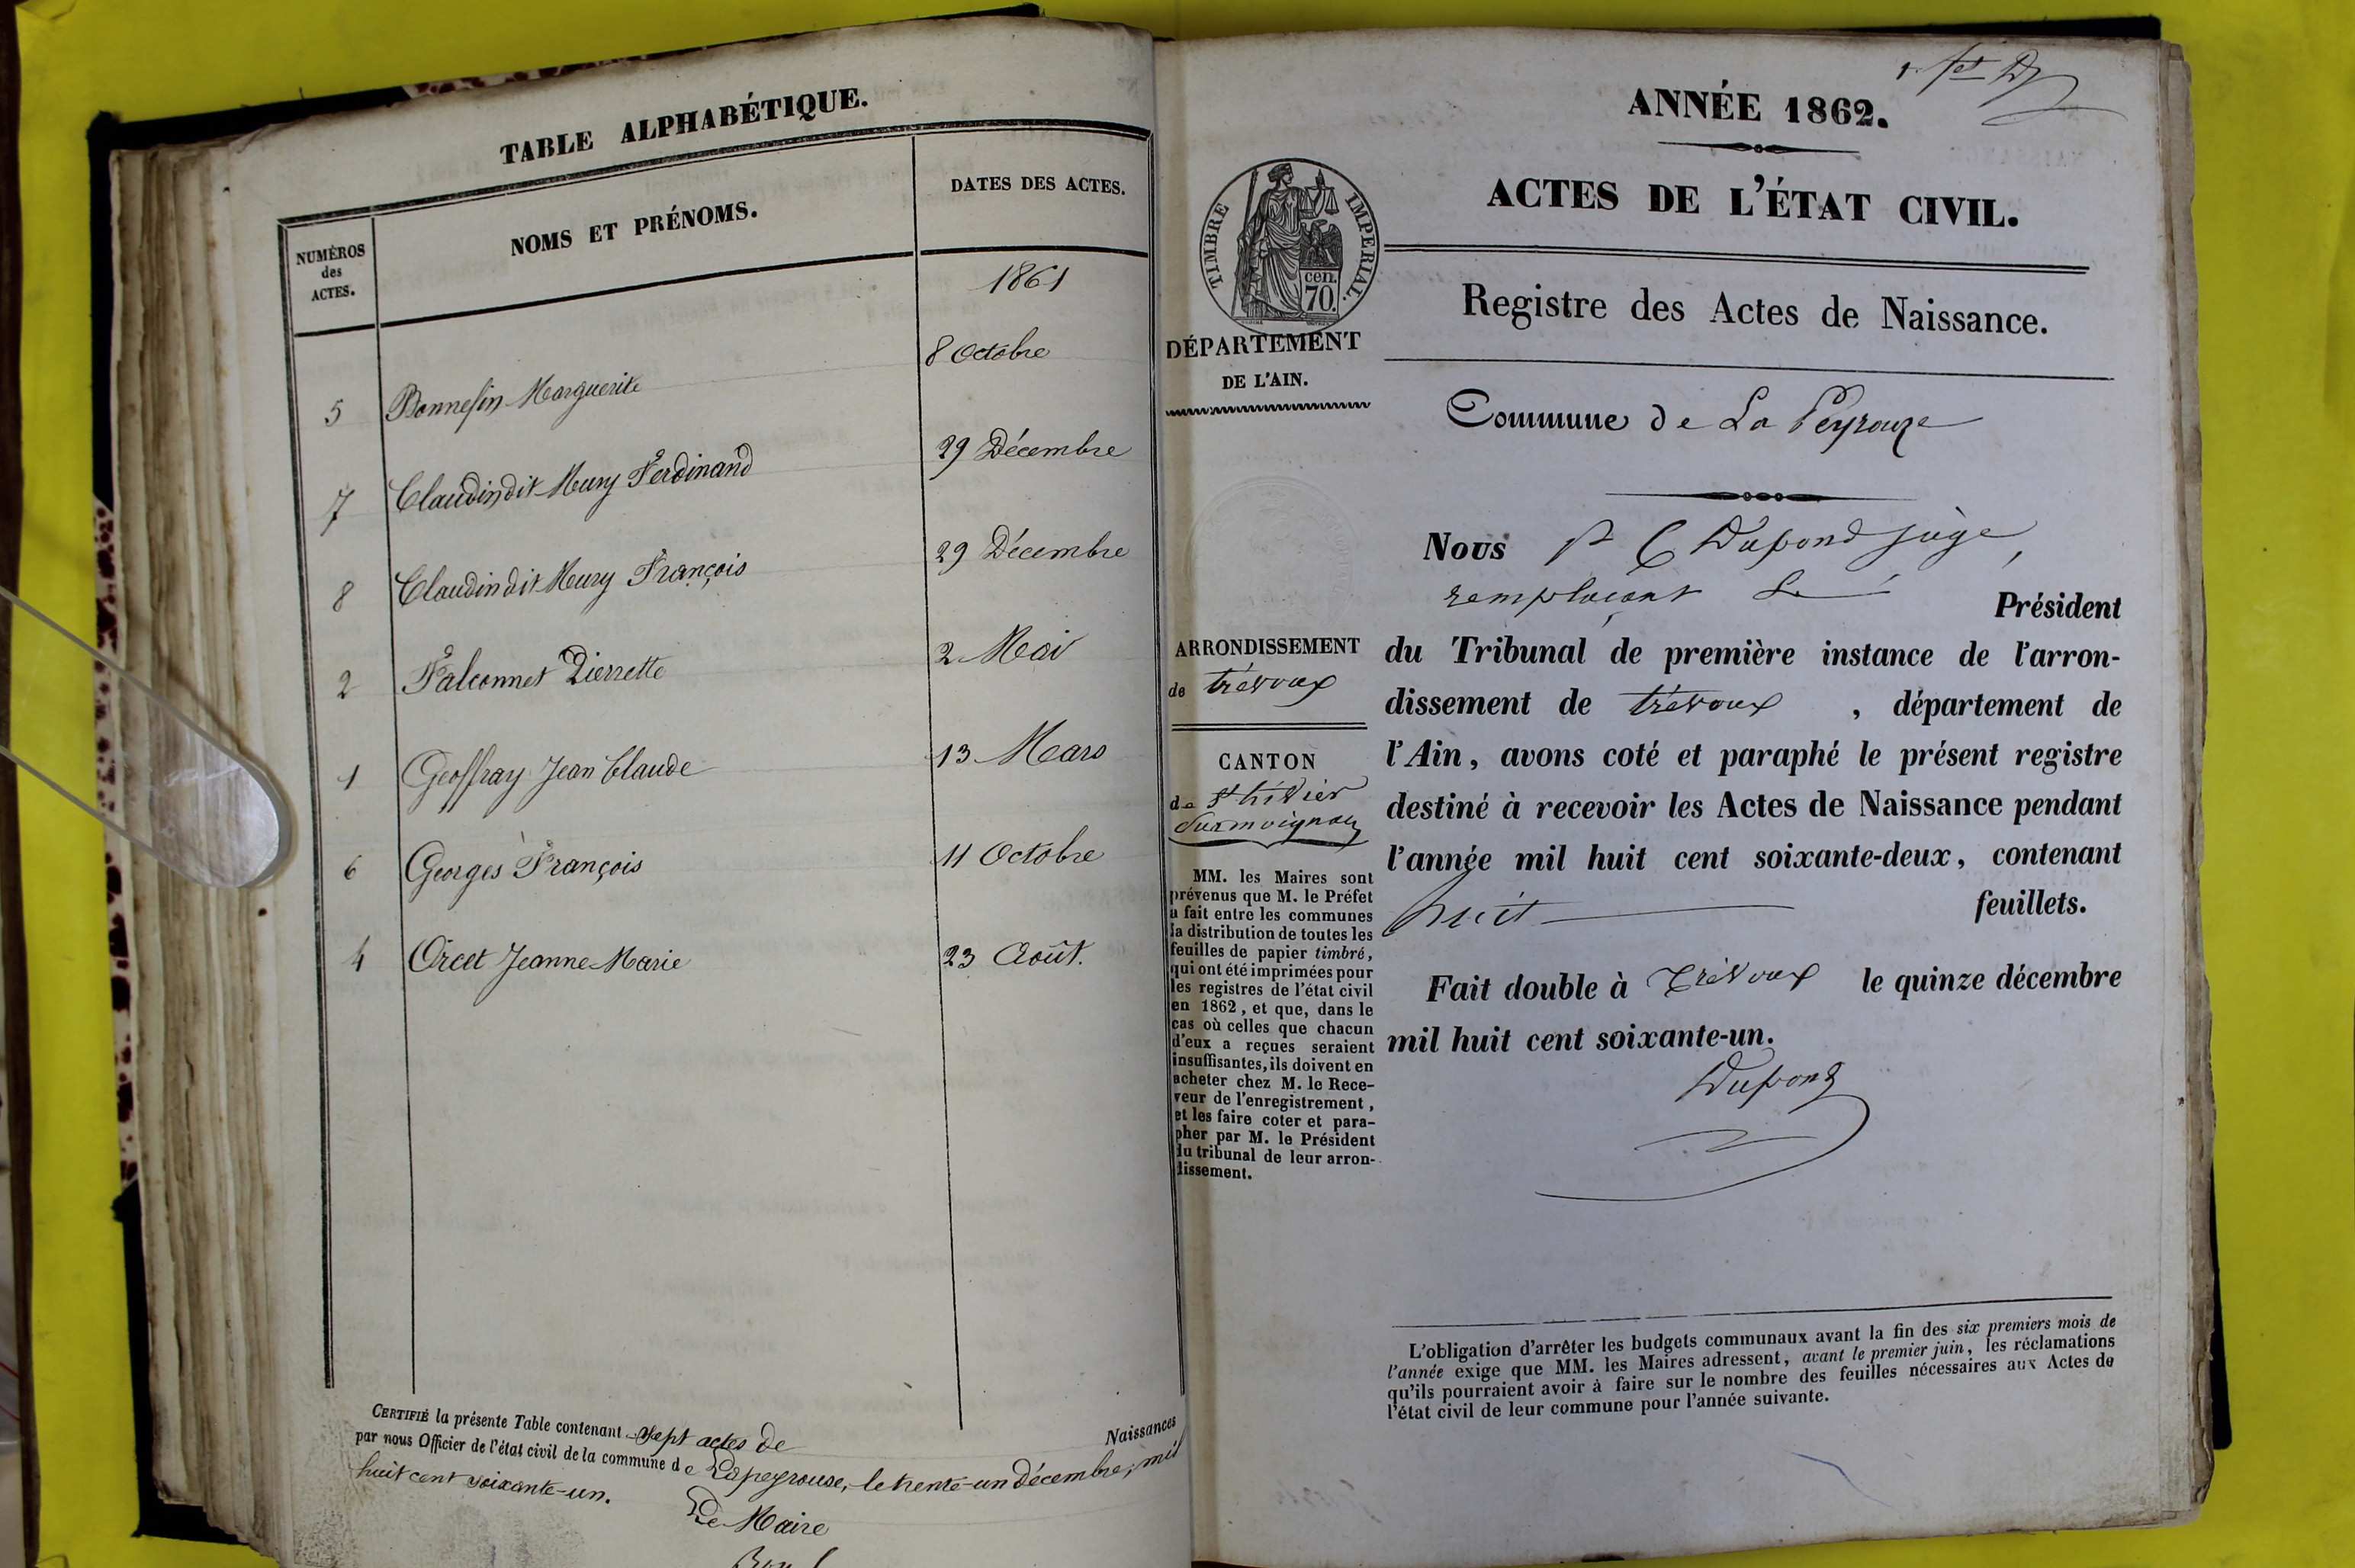 TABLE ALPHABÉTIQUE.
NUMÉROS des ACTES.
NOMS ET PRÉNOMS.
DATES DES ACTES.
1861
5 Bonnefin Marguerite 8 Octobre
7 Claudin dit Meury Ferdinand 29 Décembre
8 Claudin dit Meury François 29 Décembre
2 Falconnet Pierrette 2 Mai
1 Geoffray Jean Claude 13 Mars
6 Georges François 11 Octobre
4 Orcet Jeanne-Marie 23 Août.
CERTIFIÉ la présente Table contenant sept actes de Naissances
par nous Officier de l'état civil de la commune de Lapeyrouse, le trente-un décembre, mil
huit cent soixante-un.
Le Maire
ANNÉE 1862.
ACTES DE L'ÉTAT CIVIL.
TIMBRE IMPERIAL.
cen.
70.
Registre des Actes de Naissance.
DÉPARTEMENT
DE L'AIN.
Commune de La Peyrouze
ARRONDISSEMENT
de trévoux
CANTON
de St trivier
Surmoignan
MM. les Maires sont
prévenus que M. le Préfet
a fait entre les communes
la distribution de toutes les
feuilles de papier timbré,
qui ont été imprimées pour
les registres de l'état civil
en 1862, et que, dans le
cas où celles que chacun
d'eux a reçues seraient
insuffisantes, ils doivent en
acheter chez M. le Rece-
veur de l'enregistrement,
et les faire coter et para-
pher par M. le Président
du tribunal de leur arron-
dissement.
Nous Dupond juge,
remplaçant Le Président
du Tribunal de première instance de l'arron-
dissement de trévoux, département de
l'Ain, avons coté et paraphé le présent registre
destiné à recevoir les Actes de Naissance pendant
l'année mil huit cent soixante-deux, contenant
huit feuillets.
Fait double à Trévoux le quinze décembre
mil huit cent soixante-un.
Dupond
L'obligation d'arrêter les budgets communaux avant la fin des six premiers mois de
l'année exige que MM. les Maires adressent, avant le premier juin, les réclamations
qu'ils pourraient avoir à faire sur le nombre des feuilles nécessaires aux Actes de
l'état civil de leur commune pour l'année suivante.